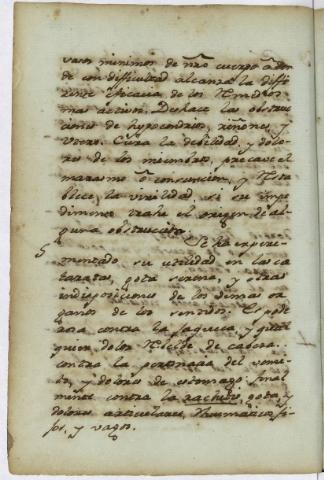 vasos minimos de nr̃o cuerpo adon
de con difficultad alcanza la diffe
rente eficacia de los Remedios
mas activos. Deshace las obstruc
ciones de hypocondrios, riñones y
utero. Cura la debilidad, y dolo
res de los miembros, precave el
marasmo ô consuncion, y Resta
blece la virilidad si su impe
dimento trahe el origen de al
guna obstruccion.
5 Se ha experi
mentado su utilidad en las ca
taratas, gota serena, y otras
indisposiciones de los demas or
ganos de los sentidos. Es pode
rosa contra la jaqueca, y qual
quier dolor Rebelde de cabeza.
contra la pertinacia del vomi
to, y dolores de estomago, final
mente contra la rachitis, gota, y
dolores articulares, Rheumaticos fi
jos, y vagos.